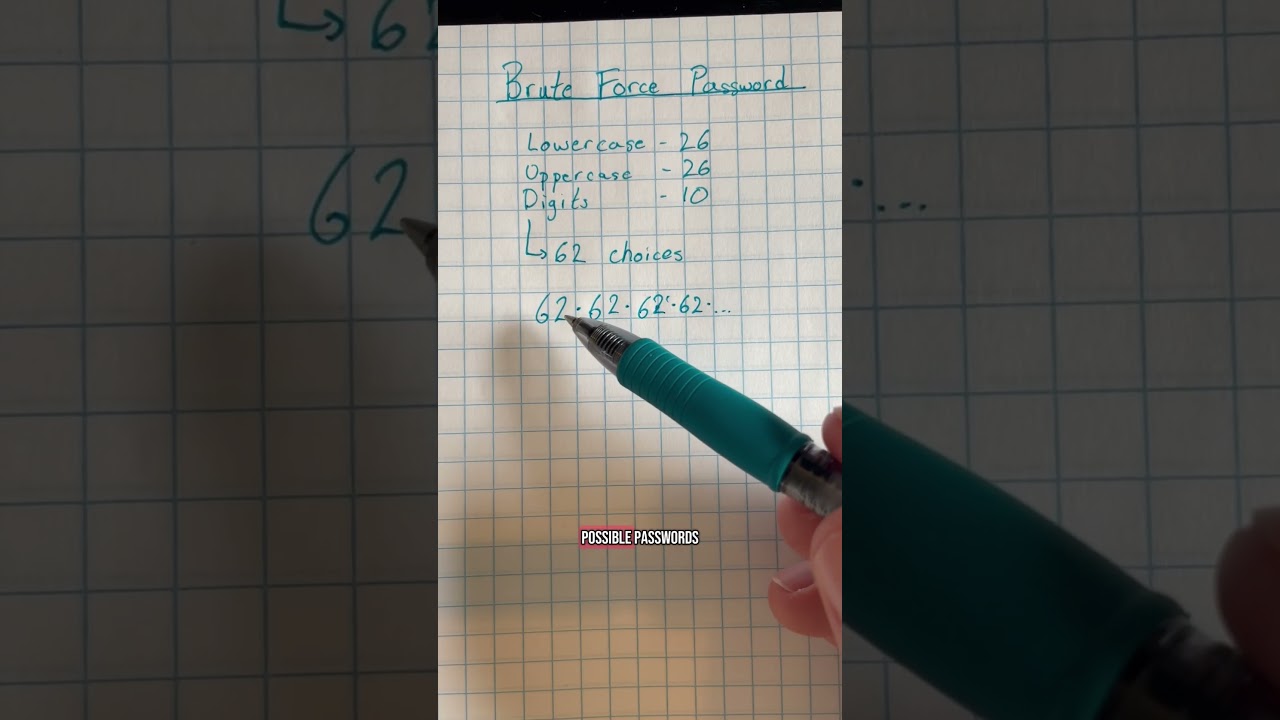 Brute Force Password
Lowercase - 26
Uppercase - 26
Digits - 10
↳ 62 choices
62 · 62 · 62 · 62 · ...
POSSIBLE PASSWORDS
62
62
...